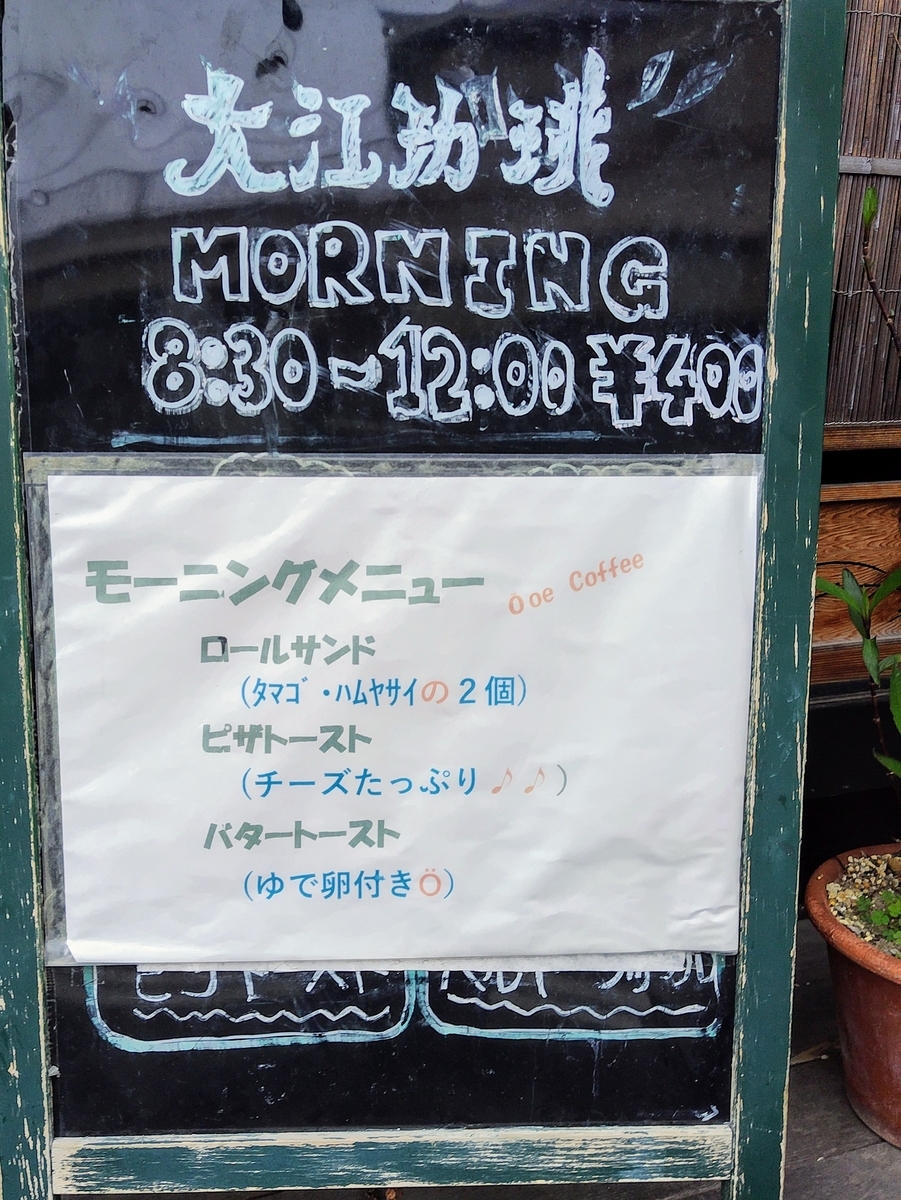 大江珈琲
MORNING
8:30~12:00 ¥400
モーニングメニュー
Ooe Coffee
ロールサンド
(ﾀﾏｺﾞ・ﾊﾑﾔｻｲの2個)
ピザトースト
(チーズたっぷり♪♪)
バタートースト
(ゆで卵付きÖ)